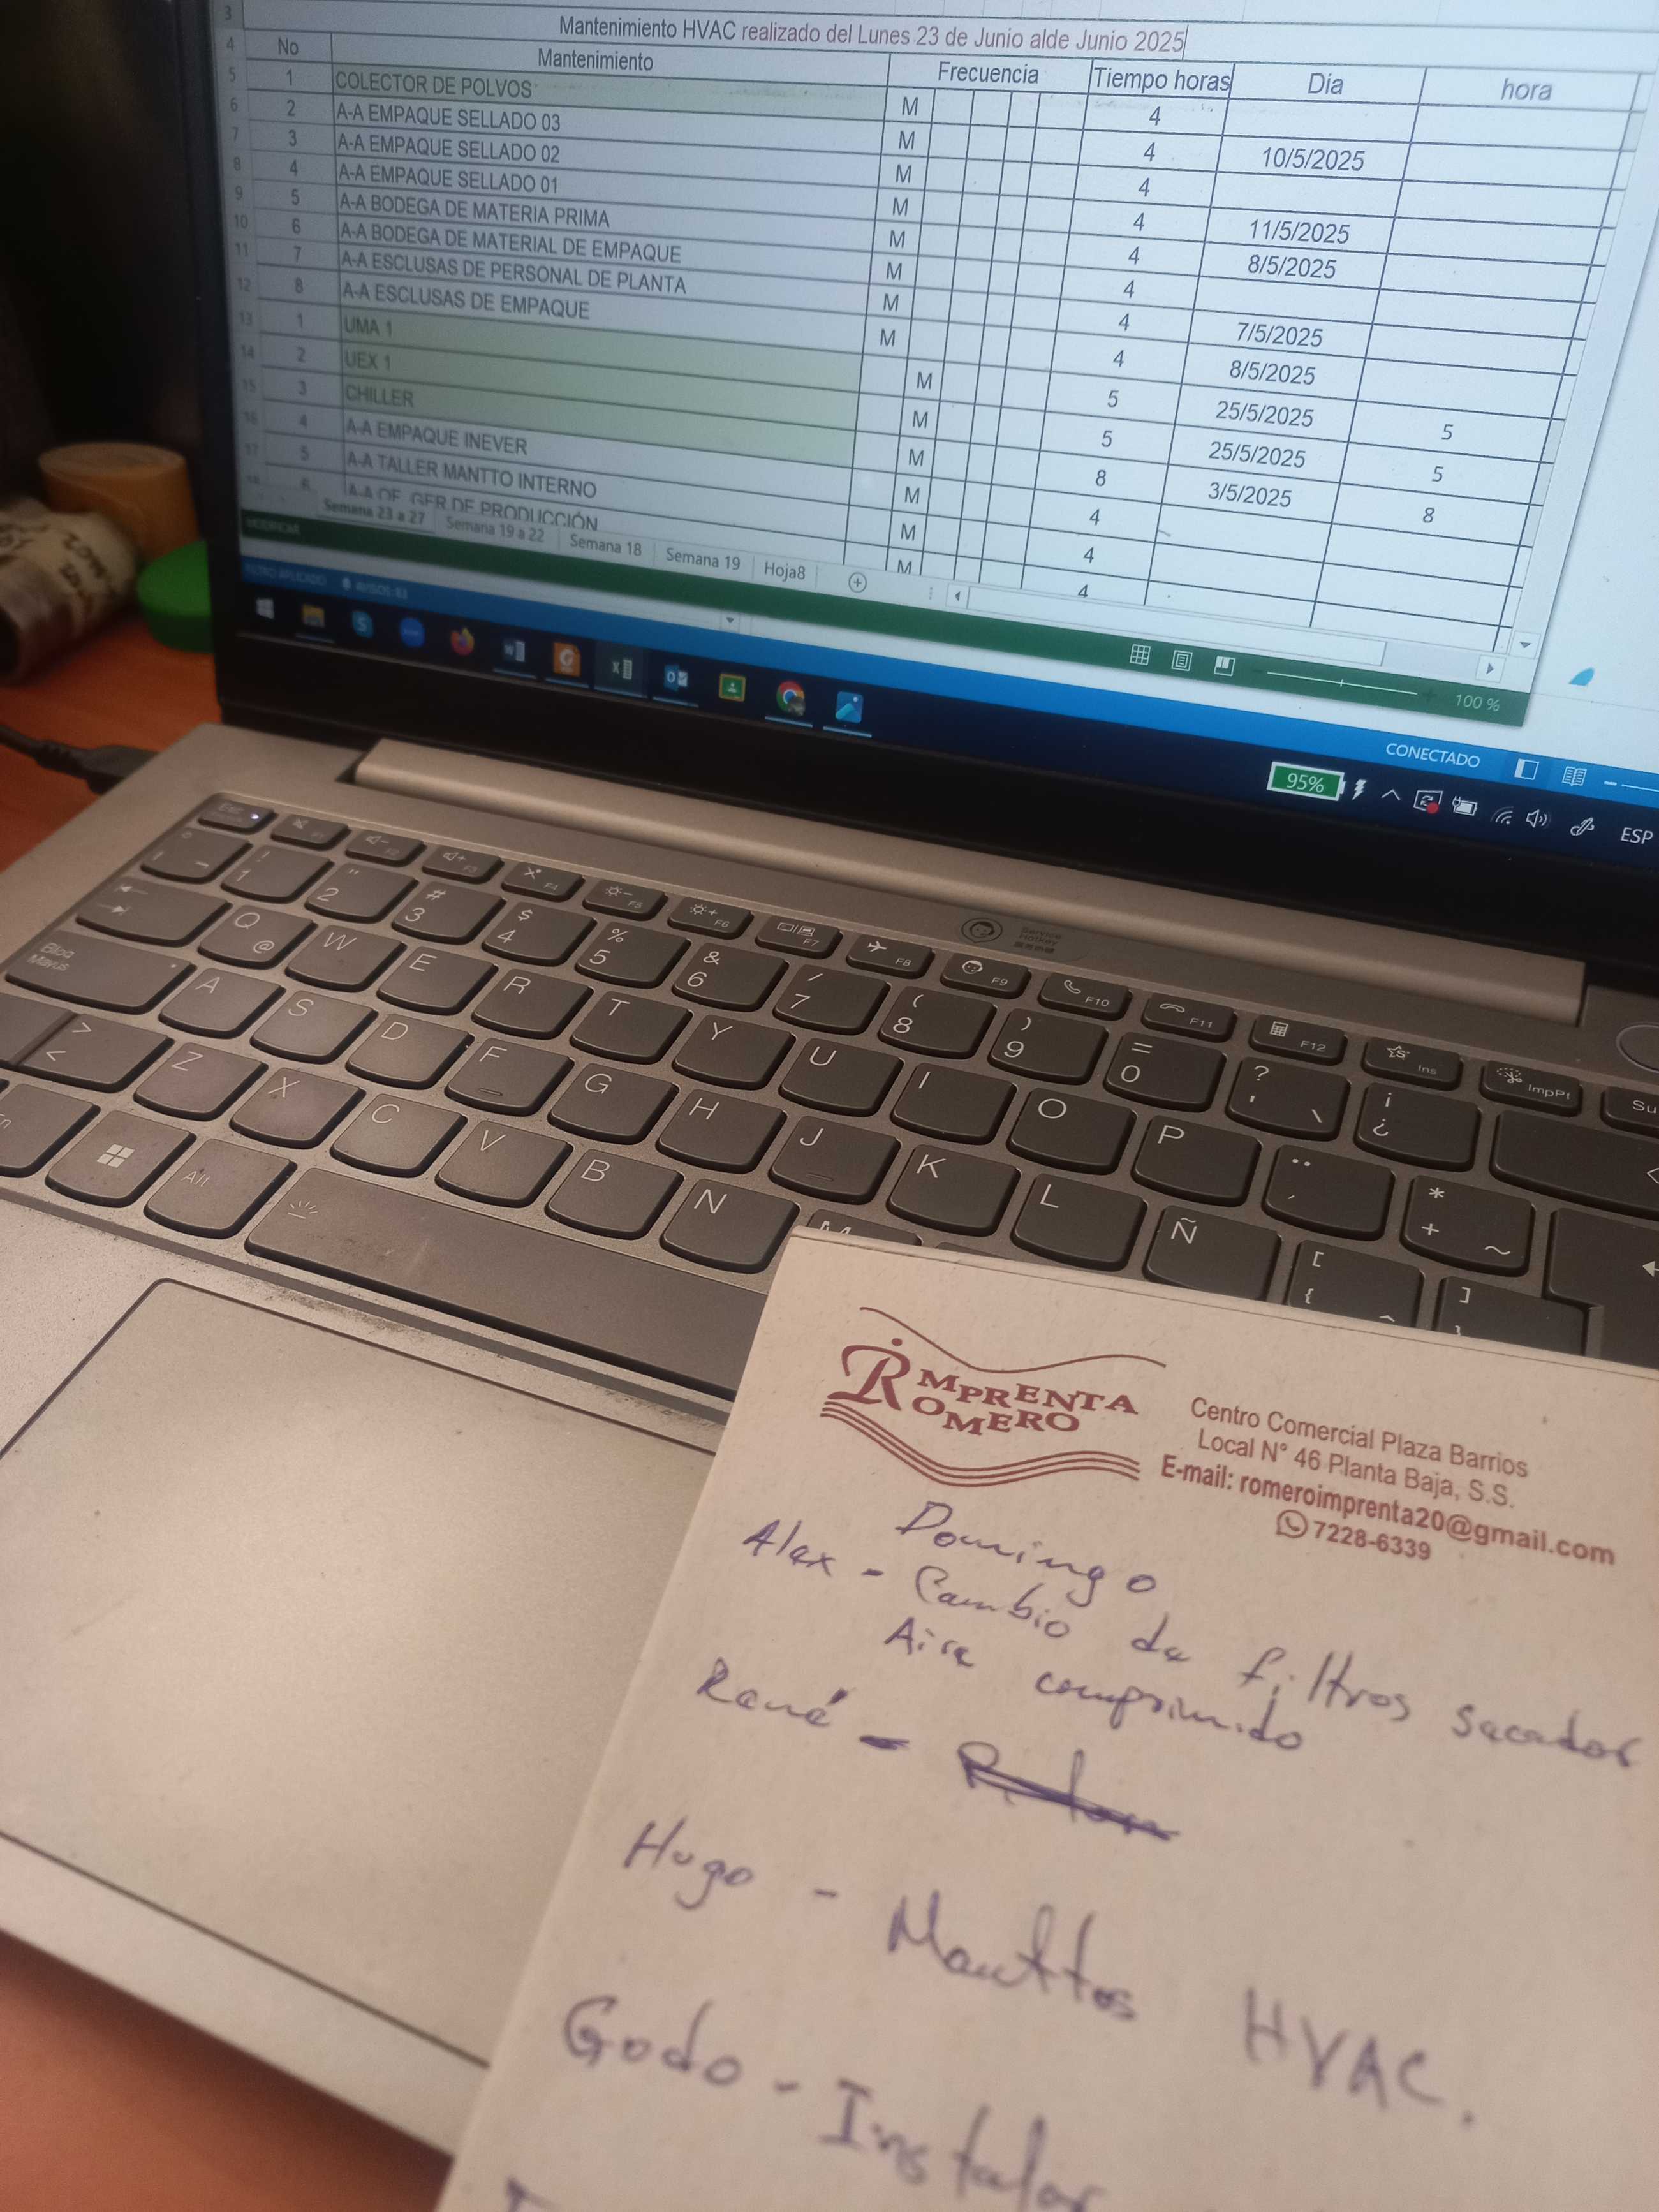 3 Mantenimiento HVAC realizado del Lunes 23 de Junio alde Junio 2025
4 No Mantenimiento Frecuencia Tiempo horas Dia hora
5 1 COLECTOR DE POLVOS M 4
6 2 A-A EMPAQUE SELLADO 03 M 4 10/5/2025
7 3 A-A EMPAQUE SELLADO 02 M 4
8 4 A-A EMPAQUE SELLADO 01 M 4 11/5/2025
9 5 A-A BODEGA DE MATERIA PRIMA M 4 8/5/2025
10 6 A-A BODEGA DE MATERIAL DE EMPAQUE M 4
11 7 A-A ESCLUSAS DE PERSONAL DE PLANTA M 4 7/5/2025
12 8 A-A ESCLUSAS DE EMPAQUE M 4 8/5/2025
13 1 UMA 1 M 5 25/5/2025 5
14 2 UEX 1 M 5 25/5/2025 5
15 3 CHILLER M 8 3/5/2025 8
16 4 A-A EMPAQUE INEVER M 4
17 5 A-A TALLER MANTTO INTERNO M 4
18 6 A-A DE GER DE PRODUCCIÓN M 4
Semana 23 a 27 Semana 19 a 22 Semana 18 Semana 19 Hoja8
MODIFICAR 100 %
FILTRO APLICADO AVISOS: 83 CONECTADO
95% ESP
Esc F1 F2 F3 F4 F5 F6 F7 F8 F9 F10 F11 F12 Ins ImpPt Su
Service Hotkey
! 1 " 2 # 3 $ 4 % 5 & 6 / 7 ( 8 ) 9 = 0 ? ' \ ¡ ¿
Q @ W E R T Y U I O P ¨ ´ * + ~
Bloq Mayús A S D F G H J K L Ñ [ { ^ ] }
> < Z X C V B N M
Fn Alt
IMPRENTA ROMERO
Centro Comercial Plaza Barrios
Local N° 46 Planta Baja, S.S.
E-mail: romeroimprenta20@gmail.com
7228-6339
Domingo
Alex - Cambio de filtros secador
Aire comprimido
René -
Hugo - Manttos HVAC.
Godo - Instalar